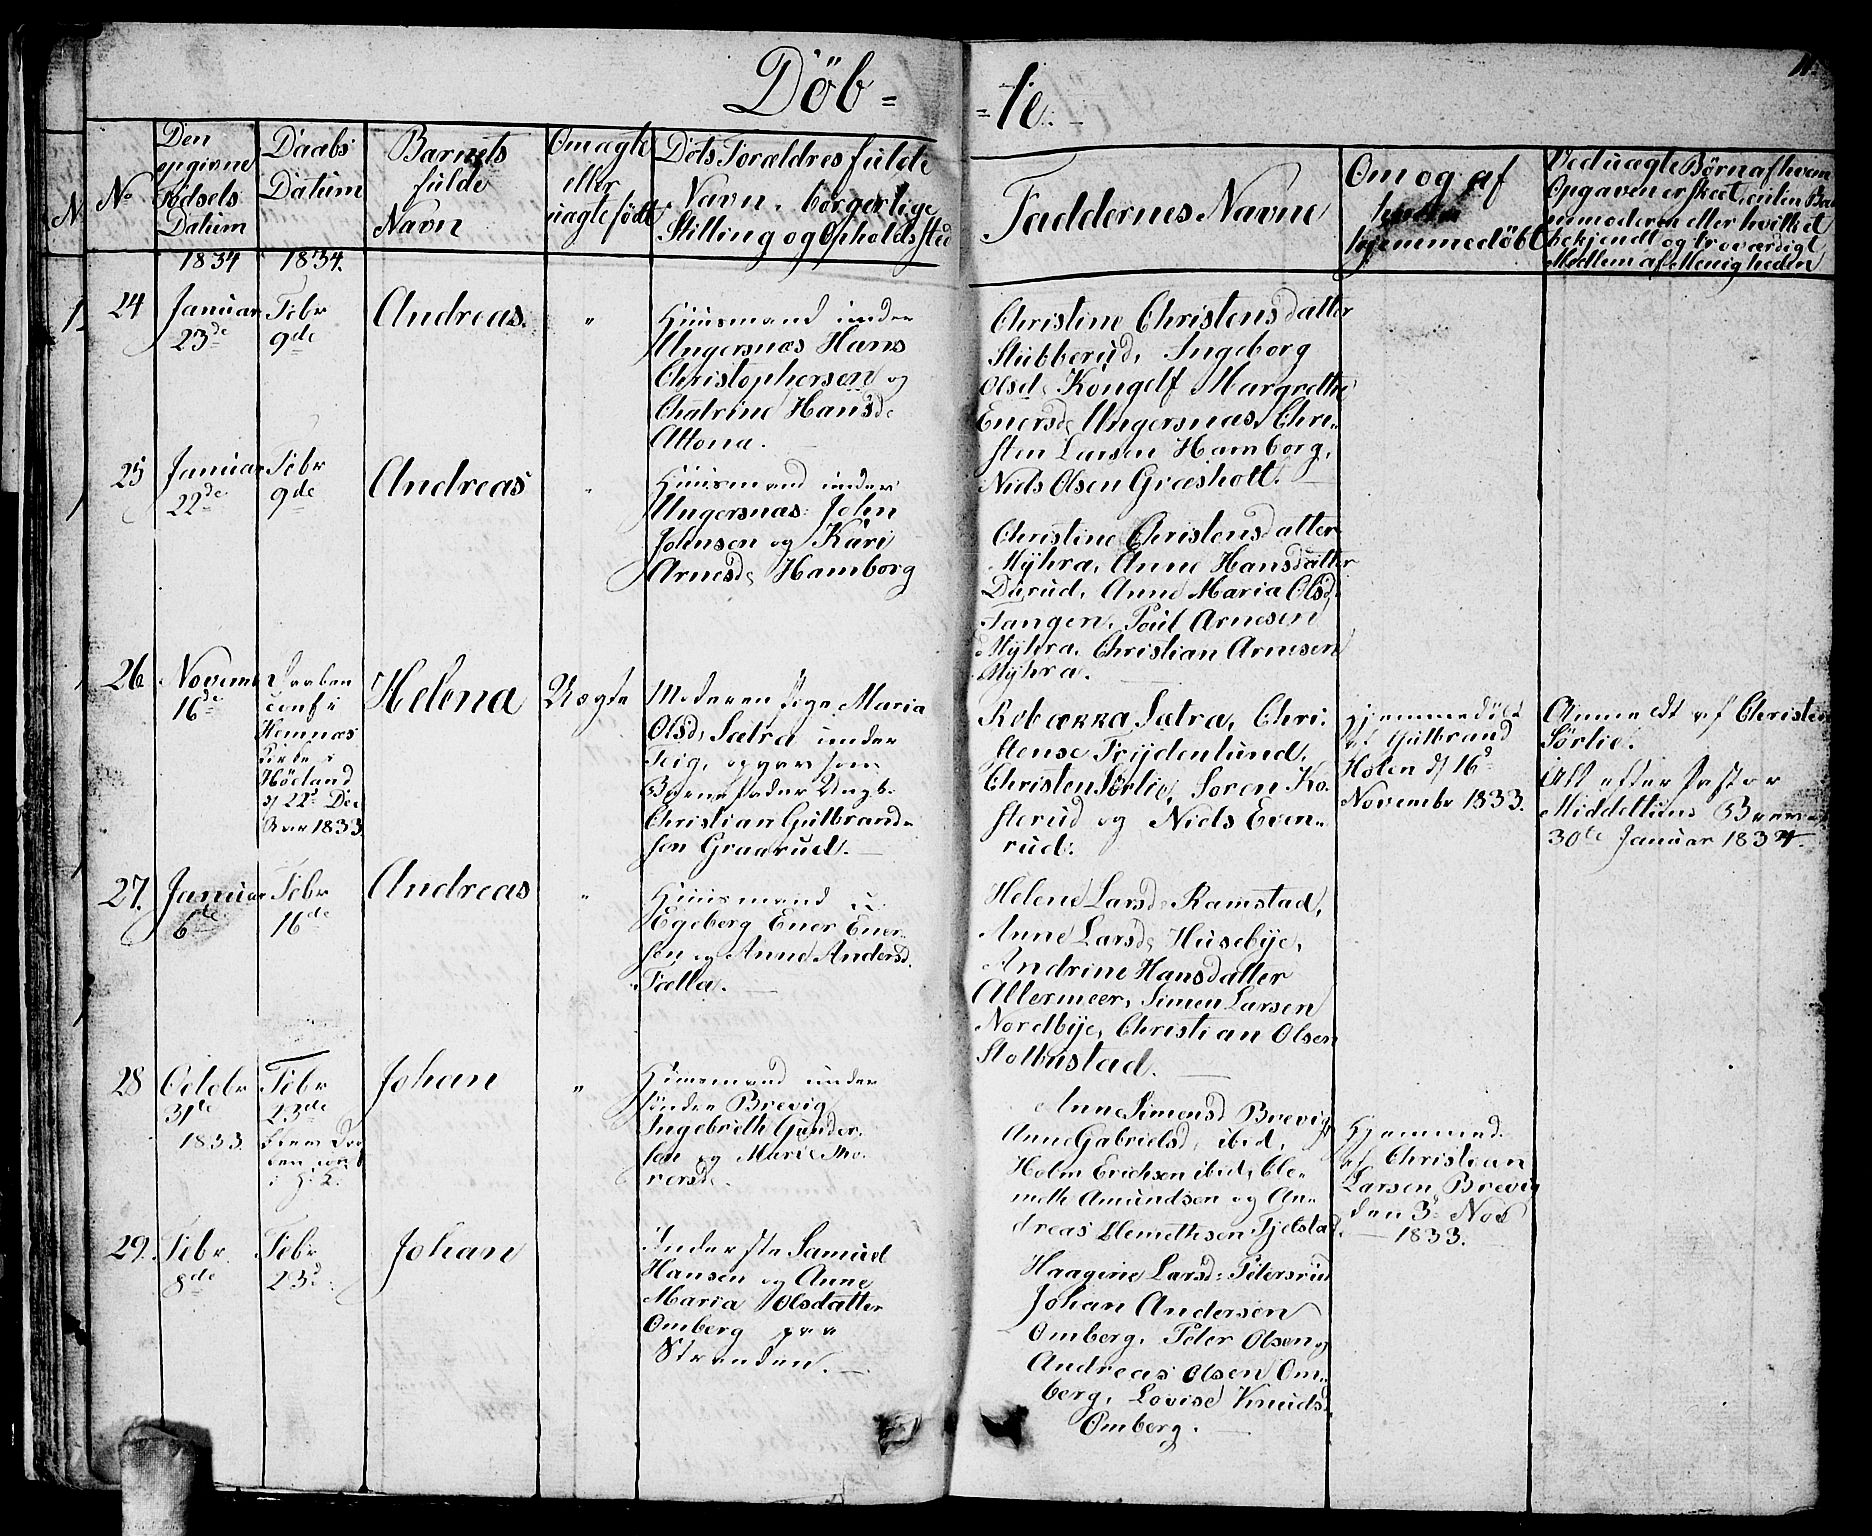 Döb=
=te.
11.
N.
No
Den
opgivne
Fødsels
Datum
Daabs
Datum
Barnets
fulde
Navn
Om ægte
eller
uægte født
Dets Forældres fulde
Navn, borgerlige
Stilling og Opholdssted
Faddernes Navne
Om og af
hvem
hjemmedöbt
Ved uægte Børn af hvem
Opgaven er skeet, enten Bar-
nemoderen eller hvilket
bekjendt og troværdigt
Medlem af Menigheden
1834
1834.
24
Januar
23de
Febr
9de
Andreas.
"
Huusmand under
Ungersnæs Hans
Christophersen og
Chatrine Hansd.
Altona.
Christine Christensdatter
Stubberud, Ingeborg
Olsd. Kongelf Margrethe
Enersd. Ungersnæs, Chri-
sten Larsen Hamborg,
Niels Olsen Græsholt.
25
Januar
22de
Febr
9de
Andreas
"
Huusmand under
Ungersnæs: John
Johnsen og Kari
Arnesd. Hamborg
Christine Christensdatter
Myhra, Anne Hansdatter
Durud, Anne Maria Olsd.
Tangen, Poul Arnesen
Myhra, Christian Arnesen
Myhra.
26
Novemb
16de
Daaben
conf i
Hemnæs
Kirke i
Höeland
d 22de De-
cbr 1833
Helena
Uægte
Moderen Pige Maria
Olsd. Sætra under
Teig, opgav som
Barnefader Ungk.
Christian Gulbrand-
sen Graarud.
Robækka Sætra, Chri-
stense Frydenlund,
Christen Sörlie, Soren Ko-
sterud og Niels Even-
rud.
Hjemmedöbt
af Gulbrand
Holen d 16d
Novembr 1833.
Anmeldt af Christen
Sörlie.
Alt efter Pastor
Middeltuns Brev af
30te Januar 1834.
27.
Januar
6de
Febr
16de
Andreas
"
Huusmand u.
Egeberg Ener Ener-
sen og Anne Andersd.
Fælla.
Helene Larsd. Ramstad,
Anne Larsd. Husebye,
Andrine Hansdatter
Allermeer, Simen Larsen
Nordbye, Christian Olsen
Slottustad.
28
Octobr
31te
1833.
Febr
23de
Daa-
ben conf
i H. K.
Johan
"
Huusmand under
söndre Brevig
Ingebreth Gunder-
sen og Marie Tho-
rersd.
Anne Simensd Brevig
Anne Gabrielsd. ibid,
Holm Erichsen ibid, Cle-
meth Amundsen og An-
dreas Clemethsen Fjelstad.
Hjemmed.
af Christian
Larsen Brevig
den 3d Nov
1833.
29.
Febr.
8de
Febr
23d.
Johan
Inderste Samuel
Hansen og Anne
Maria Olsdatter
Omberg paa
Stranden.
Haagine Larsd: Petersrud
Johan Andersen
Omberg, Peter Olsen og
Andreas Olsen Om-
berg, Lovise Knuds.
Omberg.